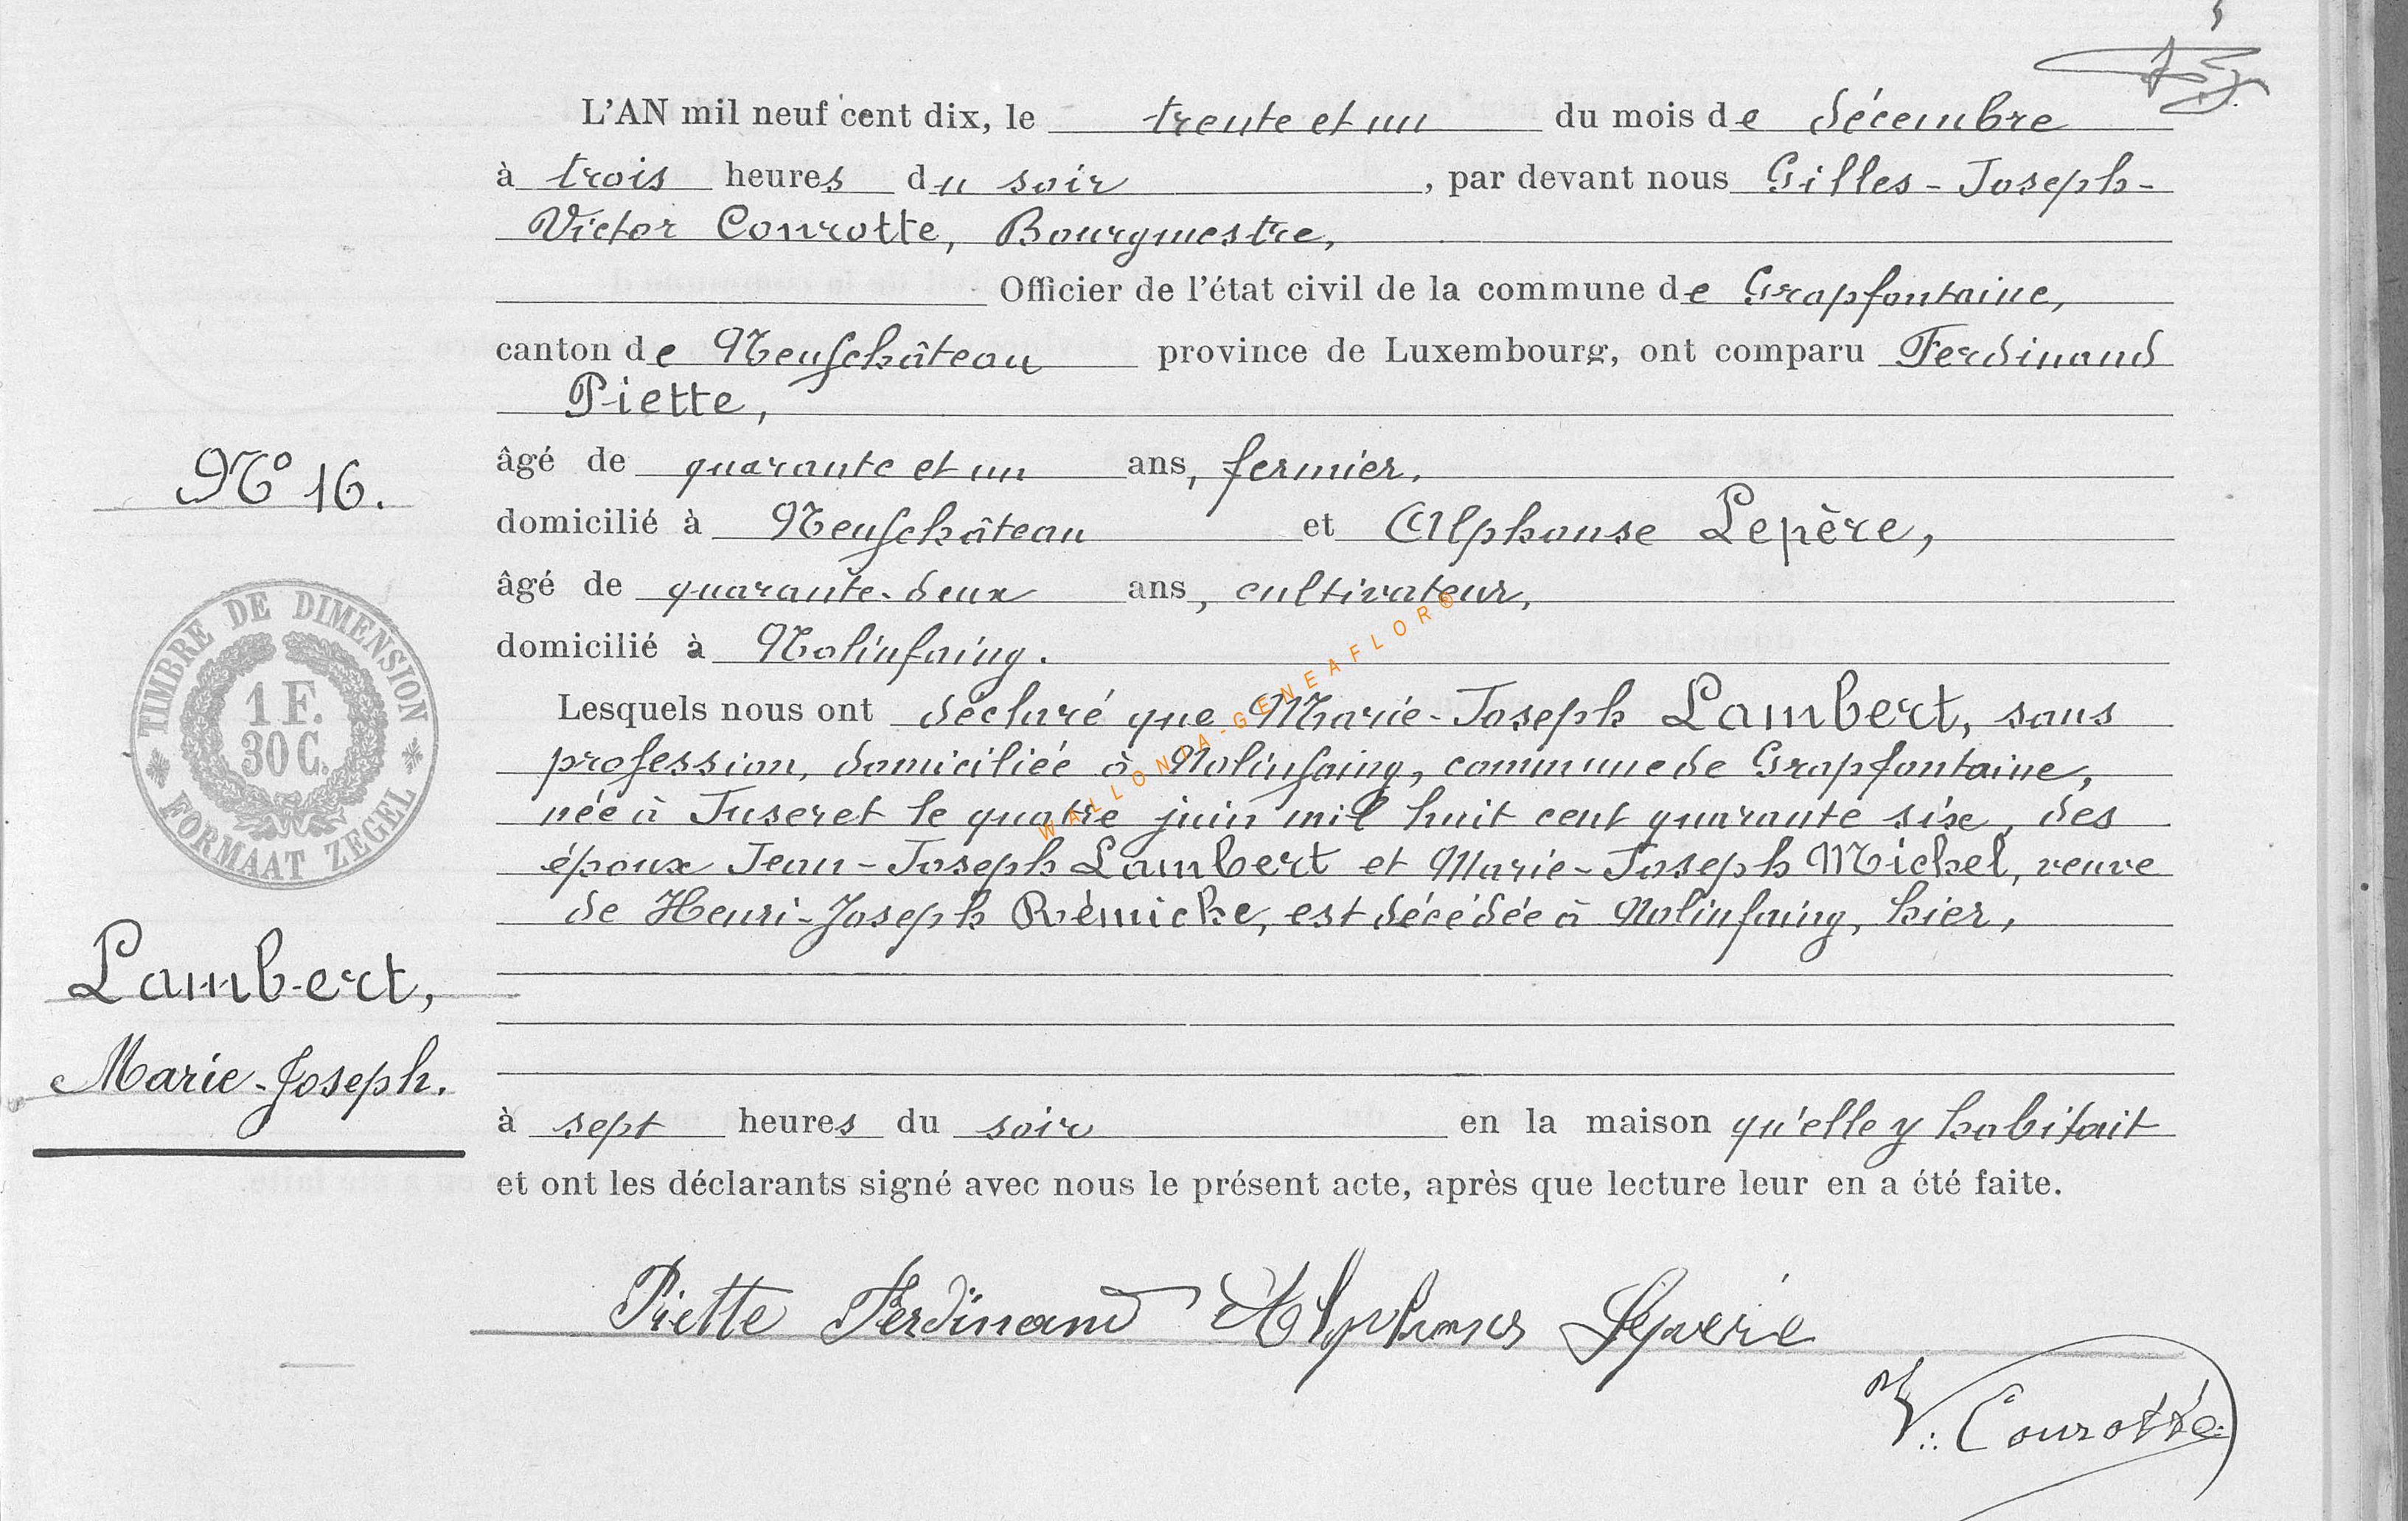 L'AN mil neuf cent dix, le trente et un du mois de décembre
à trois heures du soir, par devant nous Gilles-Joseph-
Victor Conrotte, Bourgmestre,
Officier de l'état civil de la commune de Grapfontaine,
canton de Neufchâteau province de Luxembourg, ont comparu Ferdinand
Piette,
âgé de quarante et un ans, fermier,
domicilié à Neufchâteau et Alphonse Lepère,
âgé de quarante-deux ans, cultivateur,
domicilié à Nolinfaing.
Lesquels nous ont déclaré que Marie-Joseph Lambert, sans
profession, domiciliée à Nolinfaing, commune de Grapfontaine,
née à Juseret le quatre juin mil huit cent quarante six, des
époux Jean-Joseph Lambert et Marie-Joseph Michel, veuve
de Henri-Joseph Rémiche, est décédée à Nolinfaing, hier,
à sept heures du soir en la maison qu'elle y habitait
et ont les déclarants signé avec nous le présent acte, après que lecture leur en a été faite.
Piette Ferdinand Alphonse Lepère
V. Conrotte
N° 16.
TIMBRE DE DIMENSION
1 F.
30 C.
FORMAAT ZEGEL
Lambert,
Marie-Joseph.
WALLONIA-GENEAFLOR®